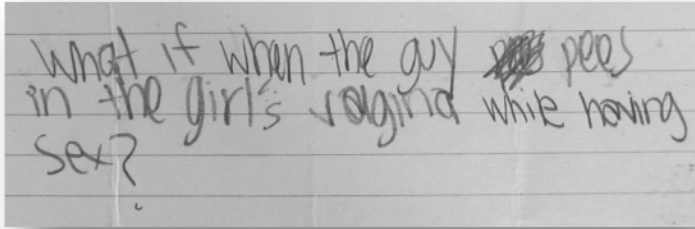 What if when the guy pees
in the girl's vagina while having
sex?